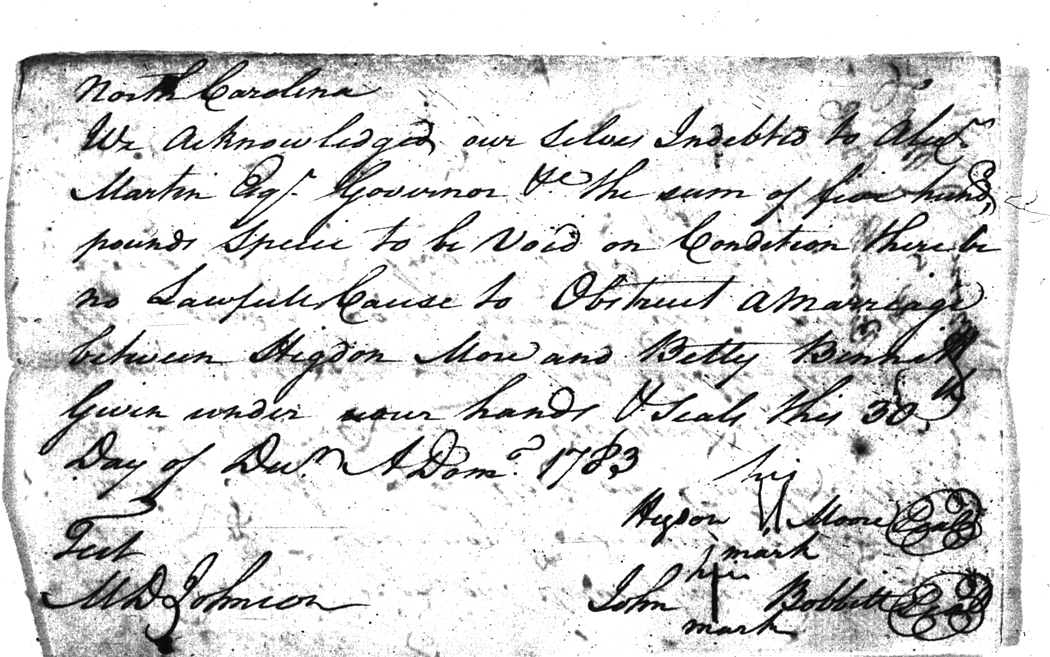 North Carolina
We Acknowledged our Selves Indebted to Alexr
Martin Esqr. Governor &c the sum of five hund
pounds Specie to be Void on Condition there be
no Lawfull Cause to Obstruct a Marriage
between Higdon More and Betty Bennitt
Given under our hands & Seals this 30th
Day of Decr. A Domo. 1783
his
Higdon Moore Seal
mark
Test
his
MD Johnson John Bobbitt Seal
mark